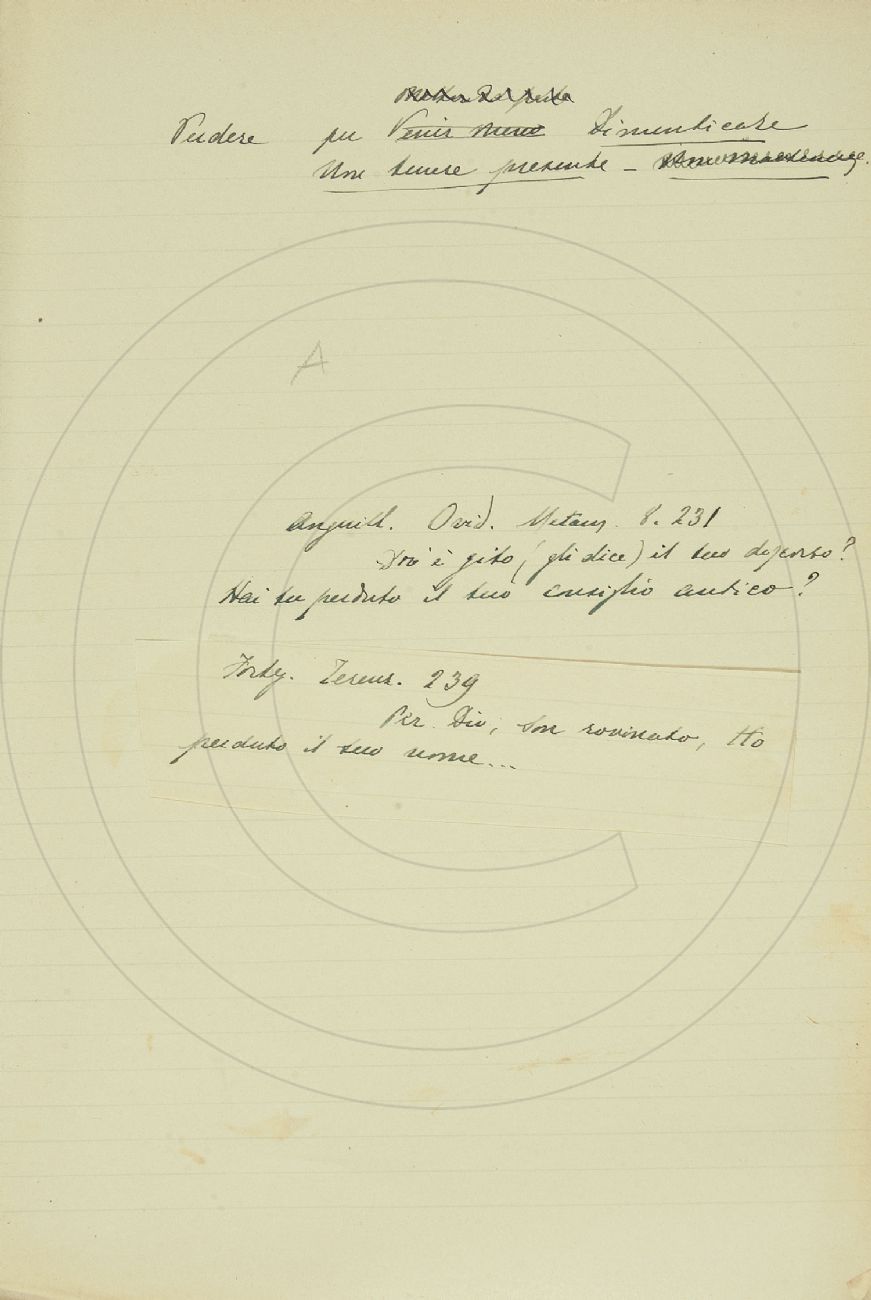 Perdere per Venir meno Dimenticare
Non tenere presente -
A
Anguill. Ovid. Metam. 8. 231
Dov'è gito (gli dice) il tuo discorso?
Hai tu perduto il tuo consiglio antico?
Forteg. Terenz. 239
Per Dio, son rovinato, Ho
perduto il suo nome...